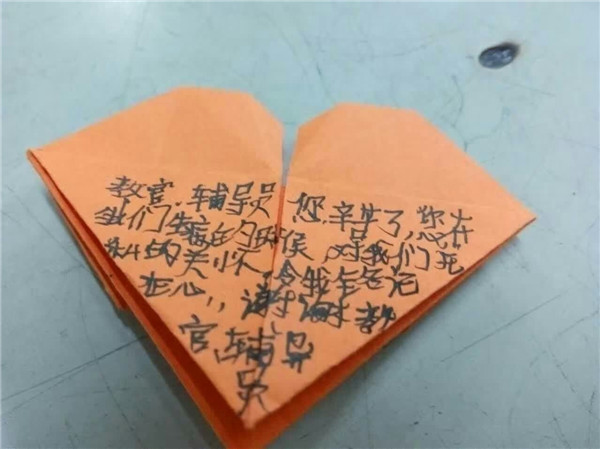 教官,辅导员 您,辛苦了,您在
我们生病的时候,对我们无
私的关怀,令我生名治
在心,,谢谢教
官,辅导
员